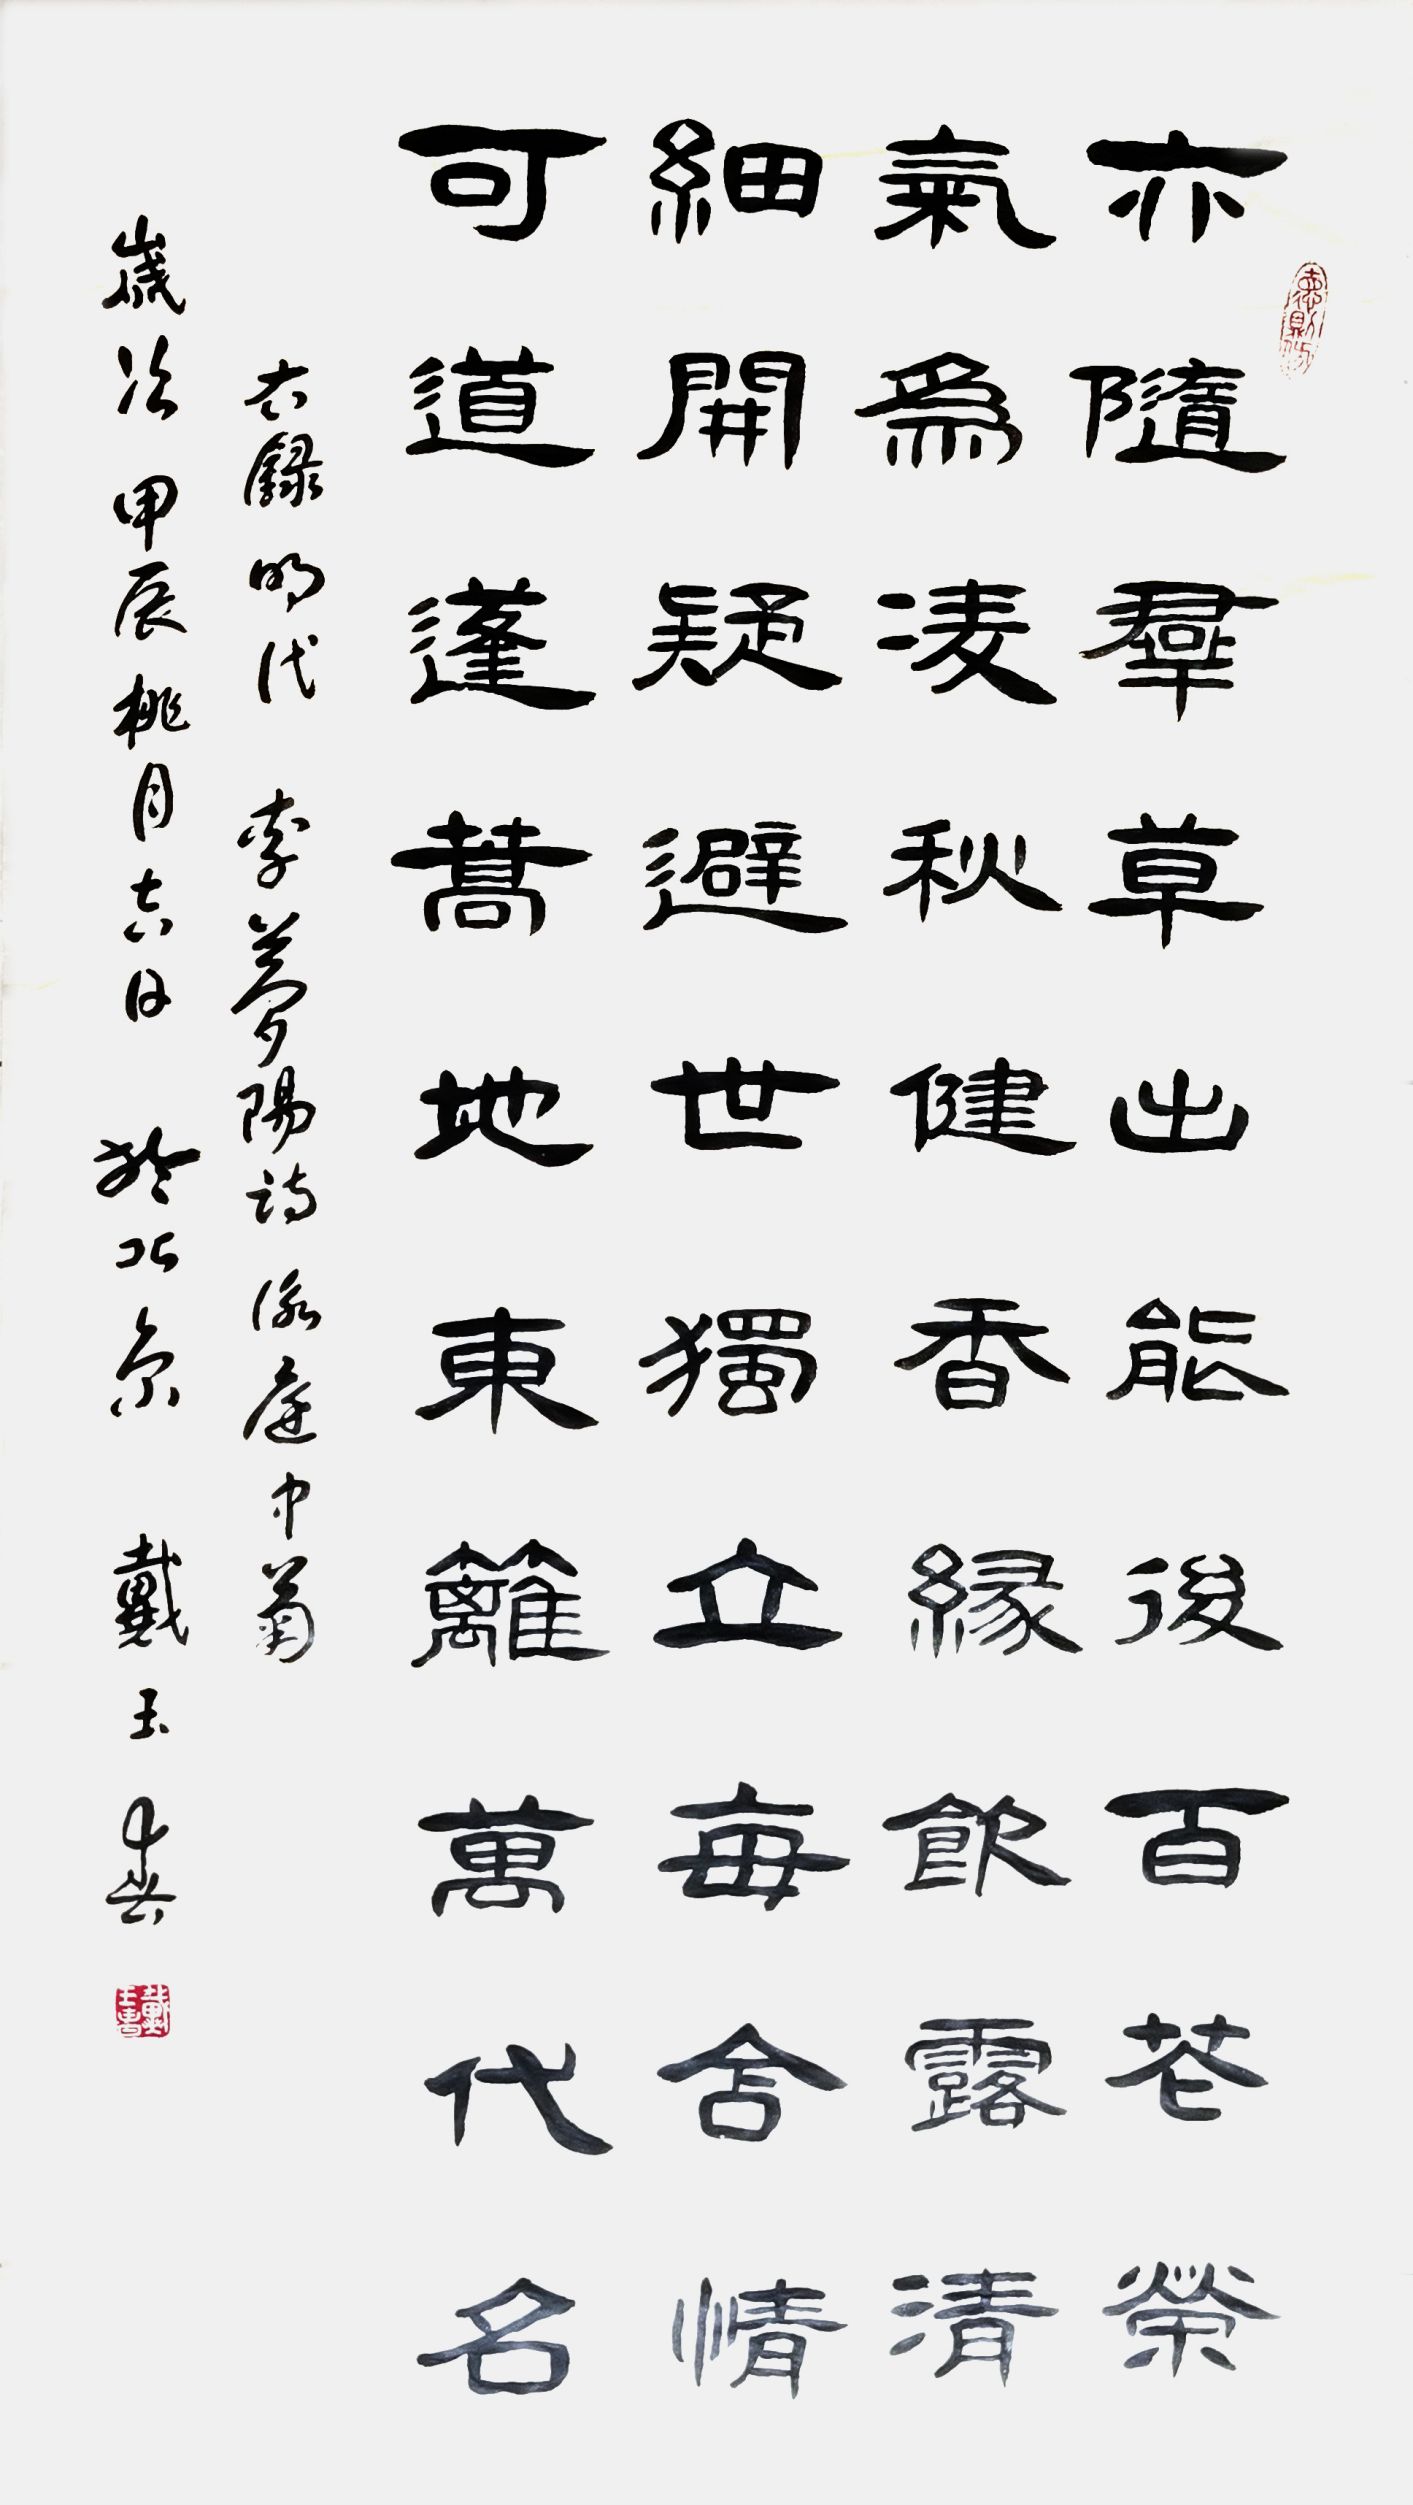 亦隨羣草出能後百花榮
氣為凌秋健香緣飲露清
細開疑避世獨立每含情
可道蓬蒿地東籬萬代名
右錄明代李夢陽詩詠庭中菊
歲次甲辰桃月六日於北京戴玉春